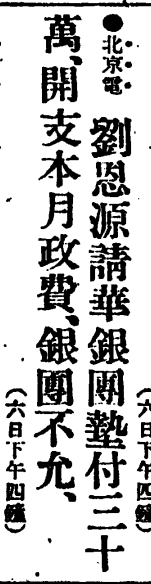 ●北京電 劉恩源請華銀團墊付三十
萬、開支本月政費、銀團不允、
(六日下午四鐘)
(六日下午四鐘)